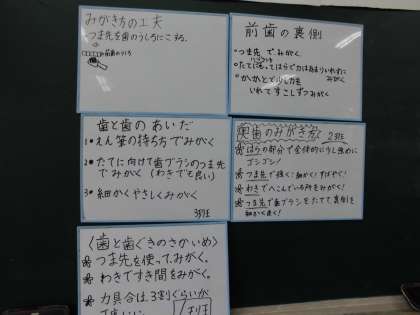 みがき方の工夫
つま先を歯のうしろにこする。
前歯のうら
前歯の裏側
・つま先でみがく。
・たてに
みがく
・かかとで少し力を
いれてすこしずつみがく
歯と歯のあいだ
1・えん筆の持ち方でみがく
2・たてに向けて歯ブラシのつま先
でみがく(わきでも良い)
3・細かくやさしくみがく
3班
奥歯のみがき方 2班
の部分で全体的に少し強めに
ゴシゴシ!
つま先で強く!細かく!すばやく!
わきでへこんでいる所をみがく!
つま先で歯ブラシをたてて、裏側を
細かく速く!
〈歯と歯ぐきのさかいめ〉
つま先を使って、みがく。
わきですき間をみがく。
力具合は、3割ぐらいが